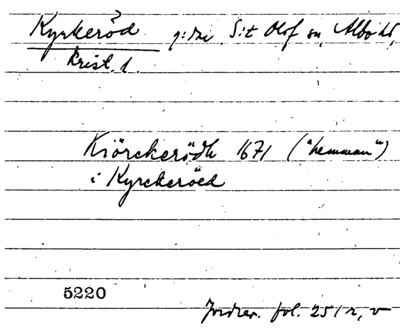 Kyrkeröd g:dri S:t Olof sn, Albo hd,
Krist. l.
Kiörckerödh 1671 ("hemman")
i Kyrckeröed
5220
Jordrev. fol. 251 r, v